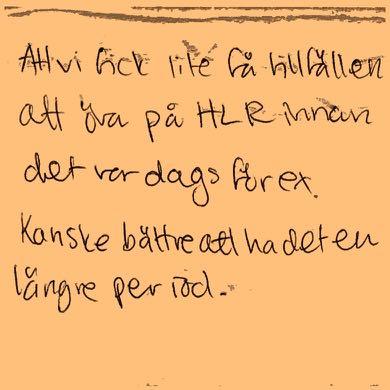 Att vi fick lite få tillfällen
att öva på HLR innan
det var dags för ex.
Kanske bättre att ha det en
längre period.